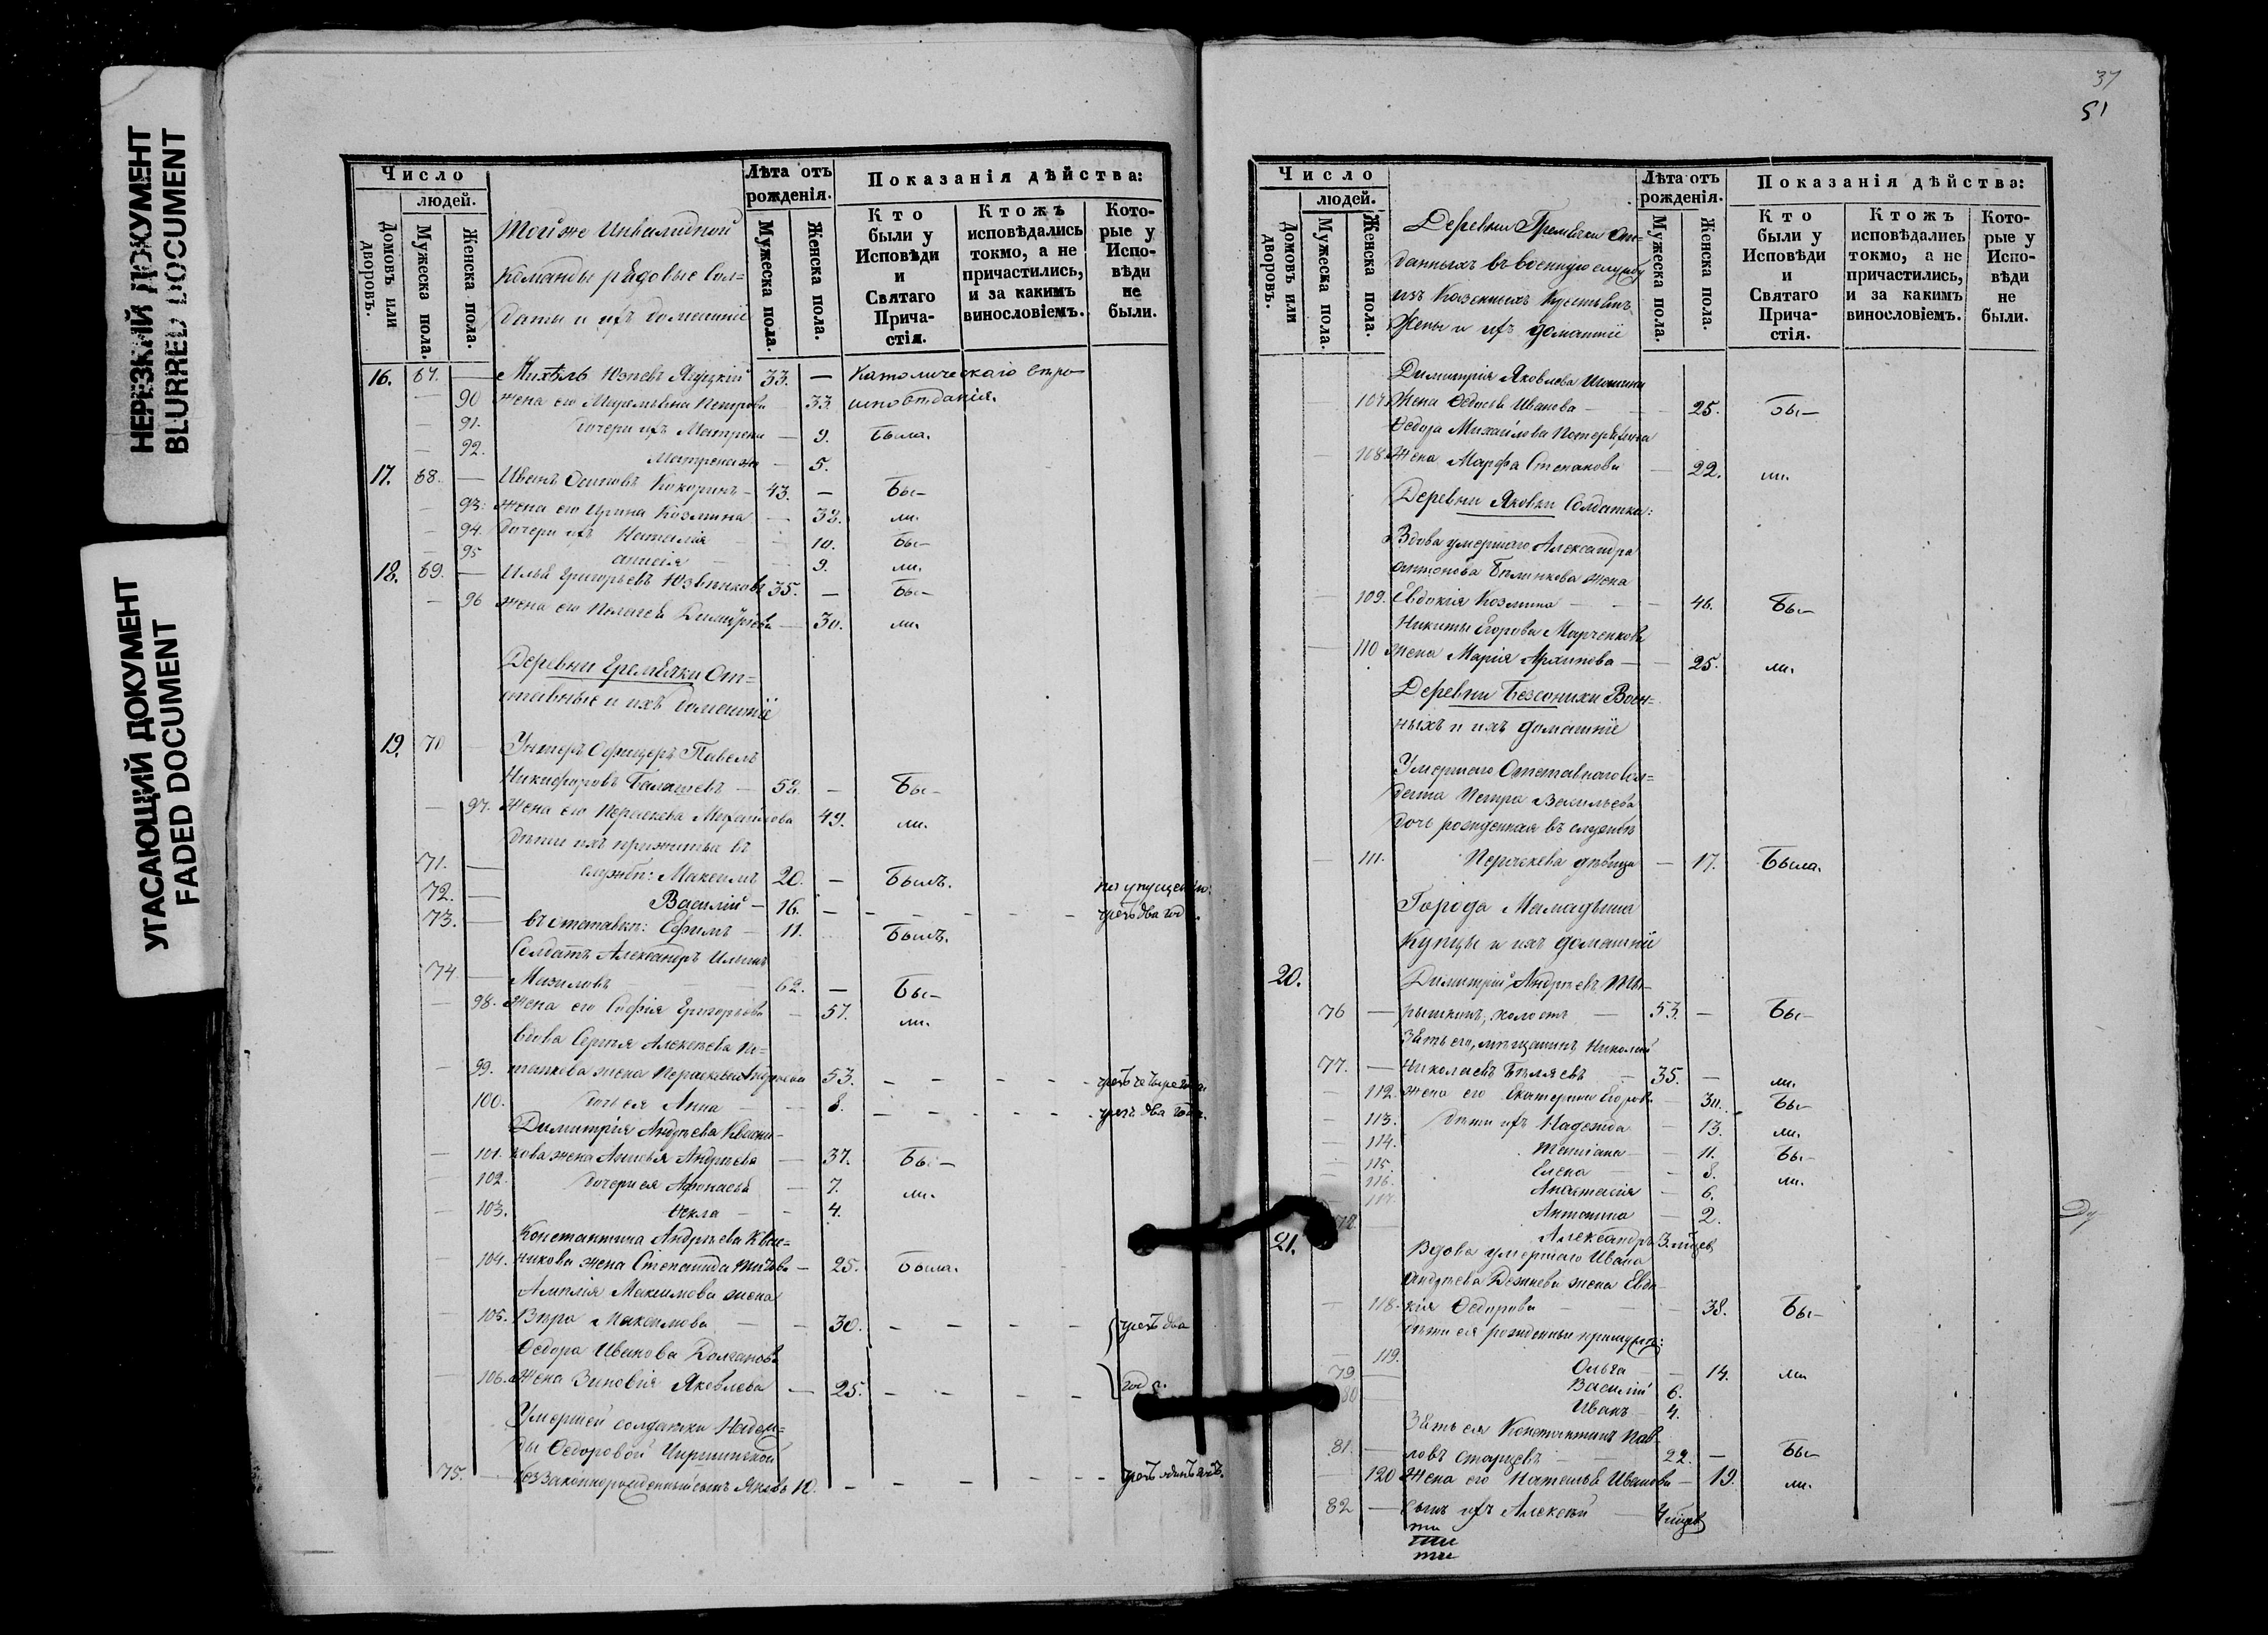 НЕРЕЗКИЙ ДОКУМЕНТ
BLURRED DOCUMENT
УГАСАЮЩИЙ ДОКУМЕНТ
FADED DOCUMENT
Число
людей.
Домовъ или дворовъ.
Мужеска пола.
Женска пола.
Тойже Инвалидной
Команды рядовые Сол=
даты и ихъ домашніе
Лѣта отъ рожденія.
Мужеска пола.
Женска пола.
Показанія дѣйства:
Кто были у Исповѣди и Святаго Прича-стія.
Ктожъ исповѣдались токмо, а не причастились, и за какимъ винословіемъ.
Кото-рые у Испо-вѣди не были.
16. 67. — 33. — Католическаго
— 90 жена его Петрова — 33. исповѣданія.
— 91. дочери ихъ Матрена — 9. Была.
— 92. Матрена — 5.
17. 68. — Иванъ Осиповъ Кокоринъ — 43. — Бы-
— 93. жена его Ирина Козмина — 38. ли.
— 94. дочери ихъ Наталія — 10. Бы-
— 95 Анисія — 9. ли.
18. 69. — Илья Григорьевъ 35. — Бы-
— 96 жена его Пелагея Димитріева — 30. ли.
Деревни Гремячки От=
ставные и ихъ домашніе
19. 70 Унтеръ Офицеръ Павелъ
Никифоровъ Балашевъ — 52. — Бы-
— 97. Жена его Параскева Михайлова 49. ли.
дѣти ихъ прижитые въ
71. — службѣ: Максимъ 20. — Былъ.
72. — Василій — 16. — по упущенію
73. — въ отставкѣ: Ефимъ — 11. Былъ. чрезъ два год
Солдатъ Александръ Ильинъ
74. — Мизиловъ 62. — Бы-
— 98. Жена его Софія Григорьева — 57. ли.
Вдова Сергѣя Алексѣева По=
— 99. тапкова жена Параскева Андреева 53. чрезъ четыре года
100. дочь ея Анна — 8. чрезъ два года.
Димитрія Андреева Квасни-
— 101. кова жена Анисья Андреева — 37. Бы-
— 102. дочери ея Афонасья — 7. ли.
— 103. Ѳекла — 4.
Константина Андреева Квас=
— 104. никова жена Степанида Титова — 25. Была.
Максимова жена
— 105. Вѣра Максимова — 30. чрезъ два
Ѳедора Иванова Долганова
— 106. Жена Зиновія Яковлева — 25. года.
Умершей солдатки Надеж=
ды Ѳедоровой
75. — беззаконнорожденный сынъ Яковъ 10. чрезъ одинъ годъ.
37
51
Число
людей.
Домовъ или дворовъ.
Мужеска пола.
Женска пола.
Деревни Гремячки От=
данныхъ въ военную службу
изъ Казенныхъ Крестьянъ
Жены и ихъ домашніе
Лѣта отъ рожденія.
Мужеска пола.
Женска пола.
Показанія дѣйства:
Кто были у Исповѣди и Святаго Прича-стія.
Ктожъ исповѣдались токмо, а не причастились, и за какимъ винословіемъ.
Кото-рые у Испо-вѣди не были.
Димитрія Яковлева Шошина
107. Жена Ѳедосья Иванова — 25. Бы-
Ѳедора Михайлова Потеряхина
— 108. Жена Марфа Степанова — 22. ли.
Деревни Яковки Солдатка:
Вдова умершаго Александра
Антонова Блинкова жена
— 109. Евдокія Козмина — 46. Бы-
Никиты Егорова Марченкова
— 110 жена Марія Архипова — 25. ли.
Деревни Безсонихи Воен=
ныхъ и ихъ домашніе
Умершаго Отставнаго Сол=
дата Петра Васильева
дочь рожденная въ службѣ
— 111. Параскева дѣвица — 17. Была.
Города Мамадыша
Купцы и ихъ домашніе
20. Димитрій Андреевъ Ты-
76 — рышкинъ, холостъ — 53. — Бы-
Зять его, мѣщанинъ Николай
77. — Николаевъ Бѣляевъ — 35. — ли.
— 112. жена его Екатерина Егорова 30. Бы-
— 113. дѣти ихъ Надежда — 13. ли.
— 114. Татіана — 11. Бы-
— 115. Елена — 8. ли.
— 116. Анастасія — 6.
— 117. Антонина — 2.
78. — Александръ 3. мѣсяц
21. Вдова умершаго Ивана
Андреева Дежнева жена Евдо-
— 118. кія Ѳедорова — 38. Бы-
дѣти ея рожденны
— 119. Ольга — 14. ли
79 — Василій 6.
80 — Иванъ 4.
Зять ея Константинъ Пав-
81. — ловъ Старцевъ — 22. — Бы-
— 120 Жена его Наталья Иванова — 19. ли.
82 — сынъ ихъ Алексѣй — 4 мѣсяц